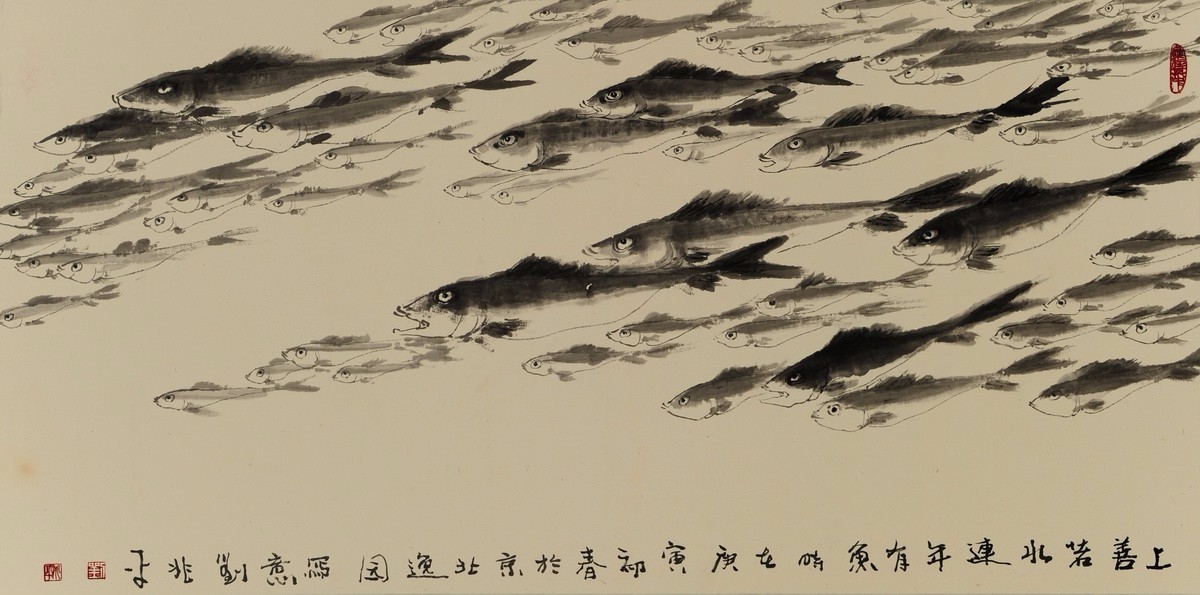 上善若水連年有魚時在庚寅初春於京北逸園寫意劉兆平